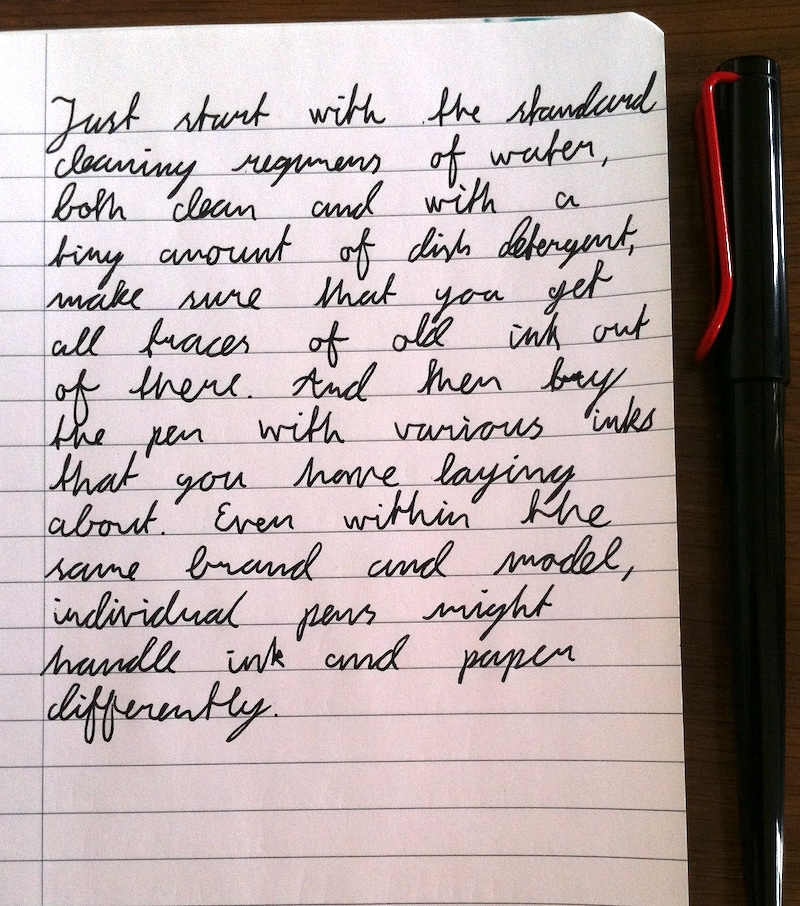 Just start with the standard
cleaning regimens of water,
both clean and with a
tiny amount of dish detergent,
make sure that you get
all traces of old ink out
of there. And then try
the pen with various inks
that you have laying
about. Even within the
same brand and model,
individual pens might
handle ink and paper
differently.